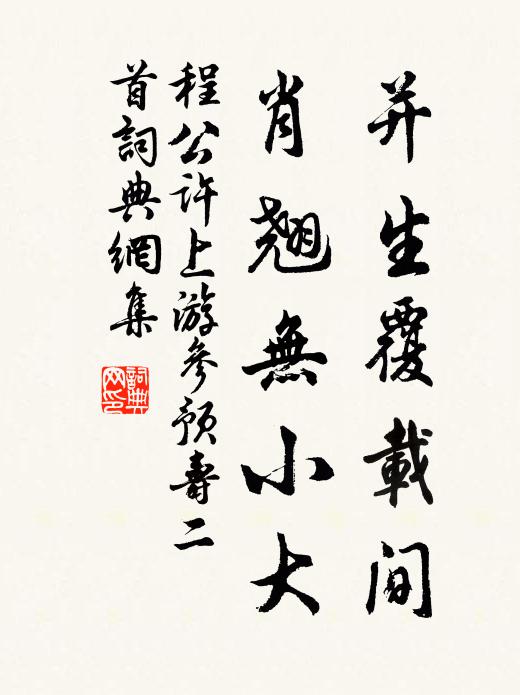 并生覆載间
肖翹無小大
程公許上游參預壽二
首詞典網集
詞典
网印